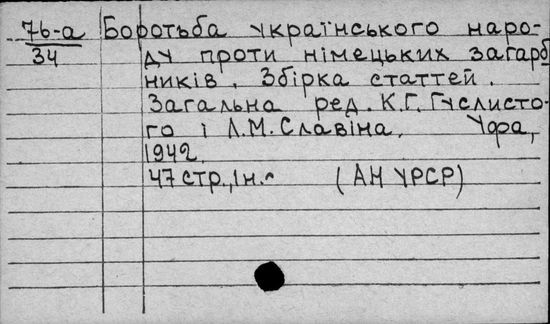 76-а Боротьба українського наро-
34 ду проти німецьких загарб
ників. Збірка статтей.
Загальна ред. К.Г. Гуслисто-
го і Л.М. Славіна. Уфа,
1942.
47 стр., ін.
(АН УРСР)